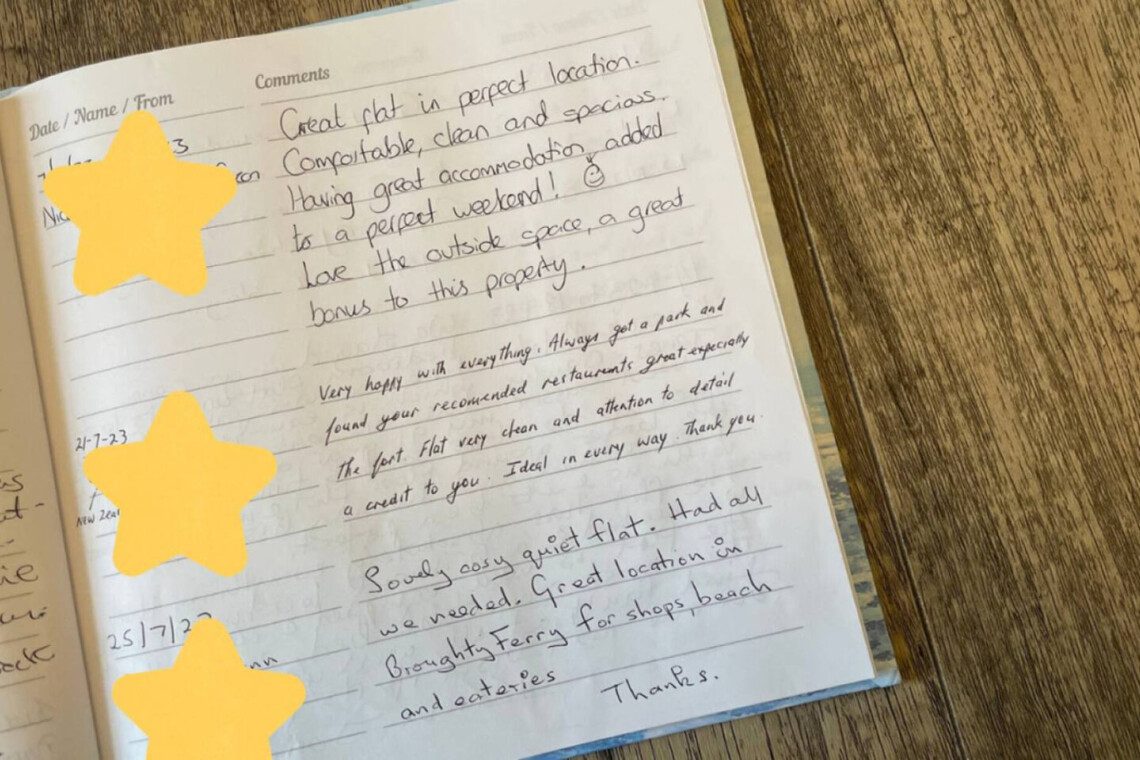 Date / Name / From
Comments
Great flat in perfect location.
Comfortable, clean and spacious.
Having great accommodation, added
to a perfect weekend!
Love the outside space, a great
bonus to this property.
21-7-23
Very happy with everything. Always got a park and
found your recomended restaurants great especially
The fort. Flat very clean and attention to detail
a credit to you. Ideal in every way. Thank you.
New
25/7/2
Lovely cosy quiet flat. Had all
we needed. Great location in
Broughty Ferry for shops, beach
and eateries
Thanks.